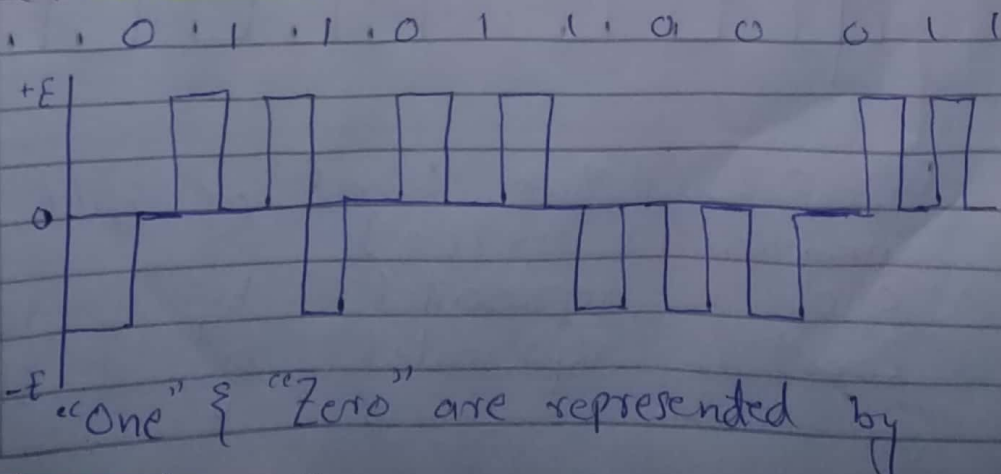 0 1 1 0 1 1 0 0 0 1 1
+E
0
-E
"One" & "Zero" are represended by